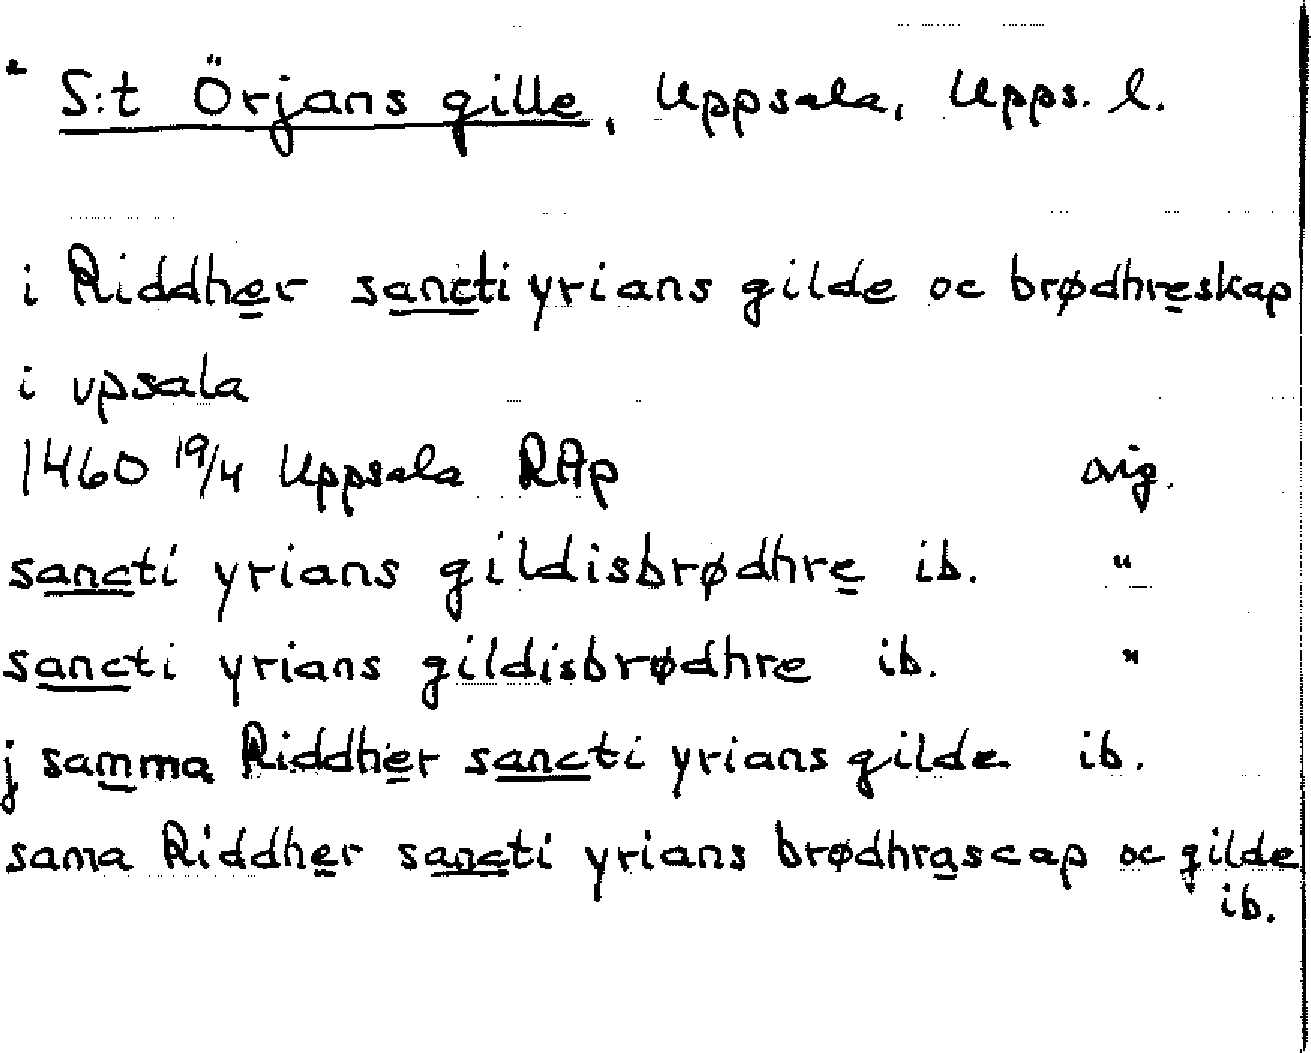 S:t Örjans gille, Uppsala, Upps. l.
i Riddher sancti yrians gilde oc brødhreskap
i upsala
1460 19/4 Uppsala RAp orig.
sancti yrians gildisbrødhre ib. "
sancti yrians gildisbrødhre ib. "
j samma Riddher sancti yrians gilde ib.
sama Riddher sancti yrians brødhrascap oc gilde
ib.